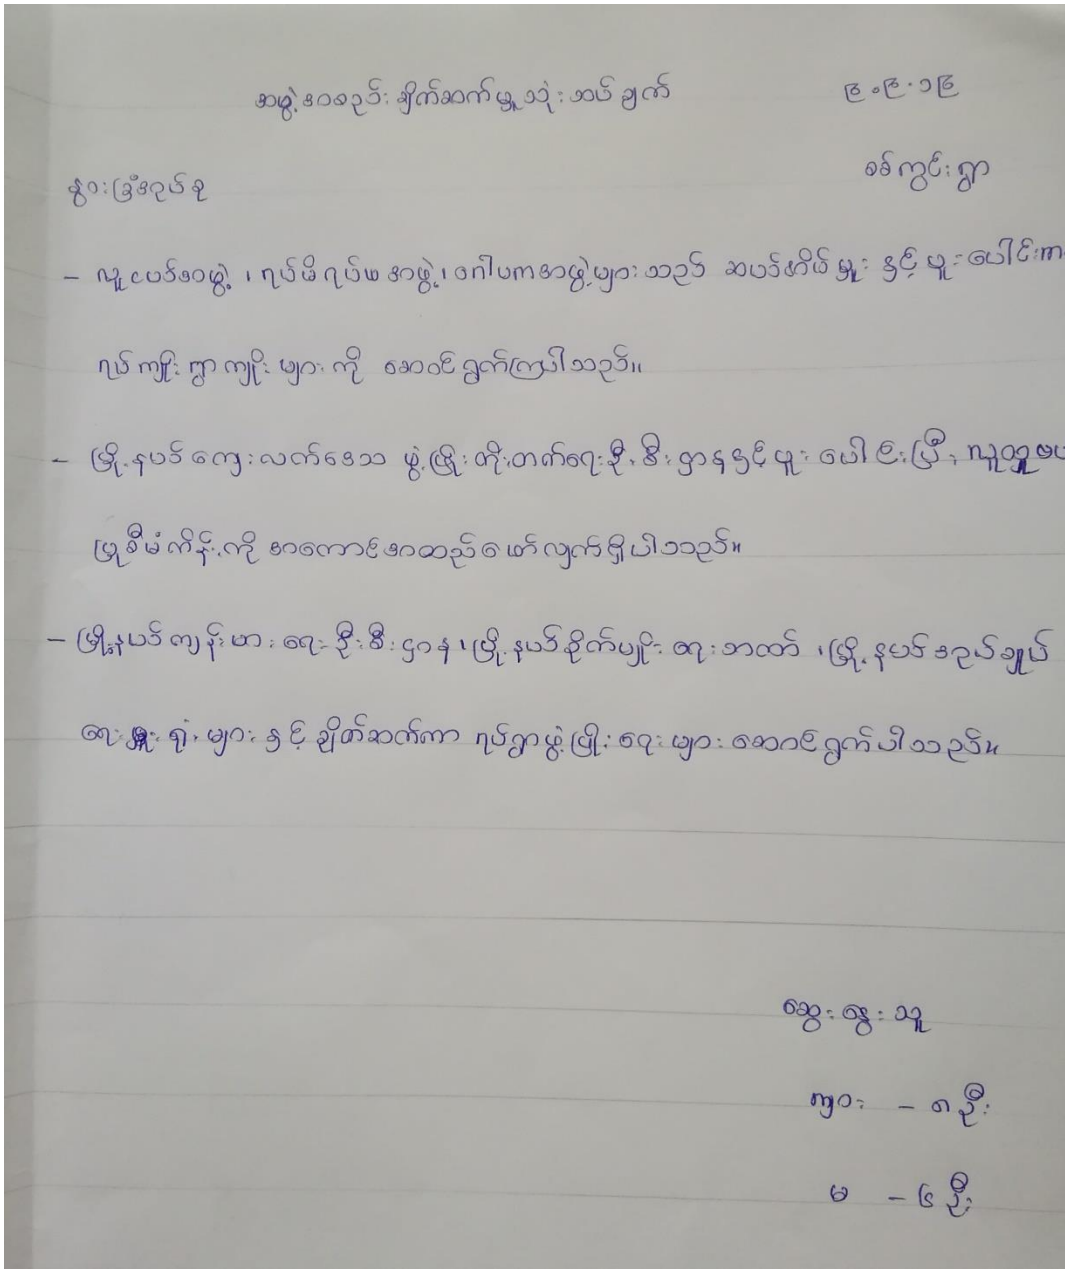 အဖွဲ့အစည်း ချိတ်ဆက်မှု သုံးသပ်ချက်
၉.၉.၁၉
စစ်ကွင်းရွာ
နွားခြံအုပ်စု
- လူငယ်အဖွဲ့၊ ရပ်မိရပ်ဖအဖွဲ့၊ ဂေါပကအဖွဲ့များသည် ဆပ်ကော်မှူး နှင့် ပူးပေါင်းကာ
ရပ်ကျိုးရွာကျိုးများကို ဆောင်ရွက်ကြပါသည်။
- မြို့နယ်ကျေးလက်ဒေသ ဖွံ့ဖြိုးတိုးတက်ရေးဦးစီးဌာနနှင့်ပူးပေါင်းပြီး လူထုဗဟို
ပြုစီမံကိန်းကို အကောင်အထည်ဖော်လျက်ရှိပါသည်။
- မြို့နယ်ကျန်းမာရေးဦးစီးဌာန၊ မြို့နယ်စိုက်ပျိုးရေးဘဏ်၊ မြို့နယ်အုပ်ချုပ်
ရေးမှူးရုံးများနှင့် ချိတ်ဆက်ကာ ရပ်ရွာဖွံ့ဖြိုးရေးများဆောင်ရွက်ပါသည်။
ဆွေးနွေးသူ
ကျား - ၈ဦး
မ - ၆ဦး